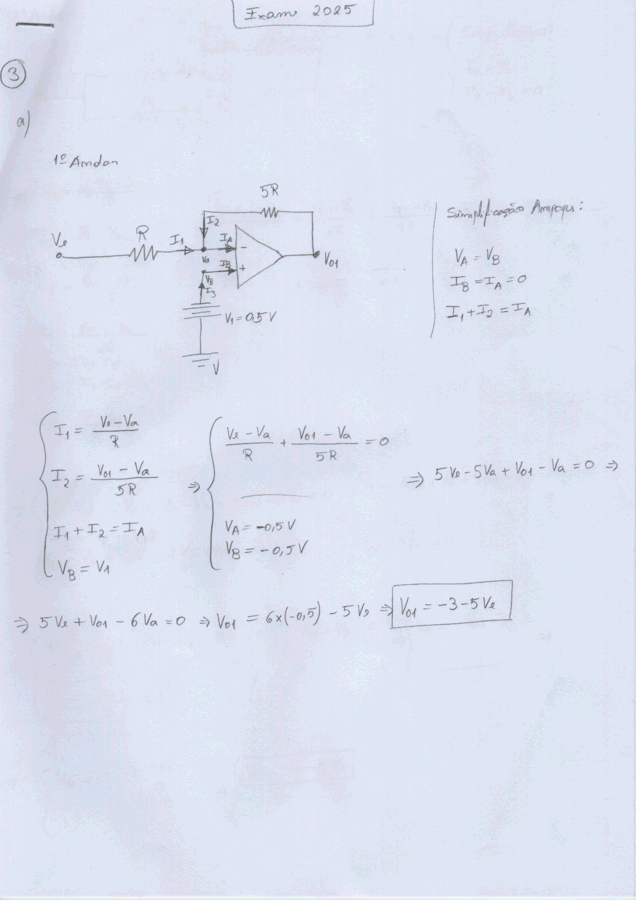 Exame 2025
3
a)
1º Andar
5R
I2
Ve
R
I1
IA
-
Va
IB
+
VB
I3
V01
V1 = 0,5 V
V
Simplificação Ampops:
VA = VB
IB = IA = 0
I1 + I2 = IA
I1 = (Ve - Va)/R
I2 = (V01 - Va)/5R
I1 + I2 = IA
VB = V1
⇒
(Ve - Va)/R + (V01 - Va)/5R = 0
VA = -0,5 V
VB = -0,5 V
⇒ 5Ve - 5Va + V01 - Va = 0 ⇒
⇒ 5Ve + V01 - 6Va = 0 ⇒ V01 = 6x(-0,5) - 5Ve ⇒ V01 = -3 - 5Ve